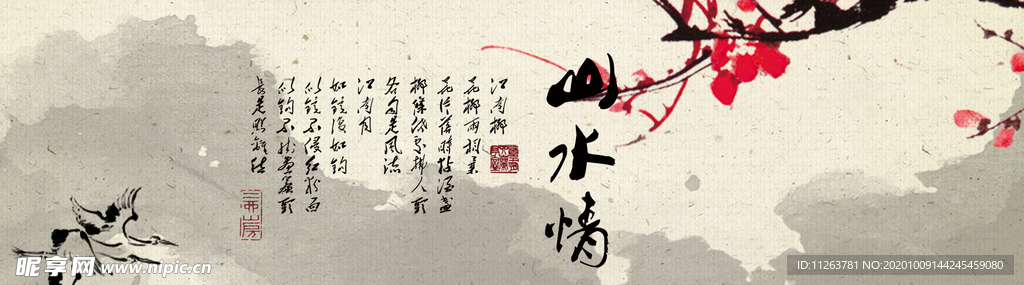 山水情
江南柳
花柳兩相柔
花片落時粘酒盞
柳條低處拂人頭
各自是風流
江南月
如鏡復如鉤
似鏡不侵紅粉面
似鉤不挂畫簾頭
長是照離愁
昵享网 www.nipic.cn
ID:11263781 NO:20201009144245459080